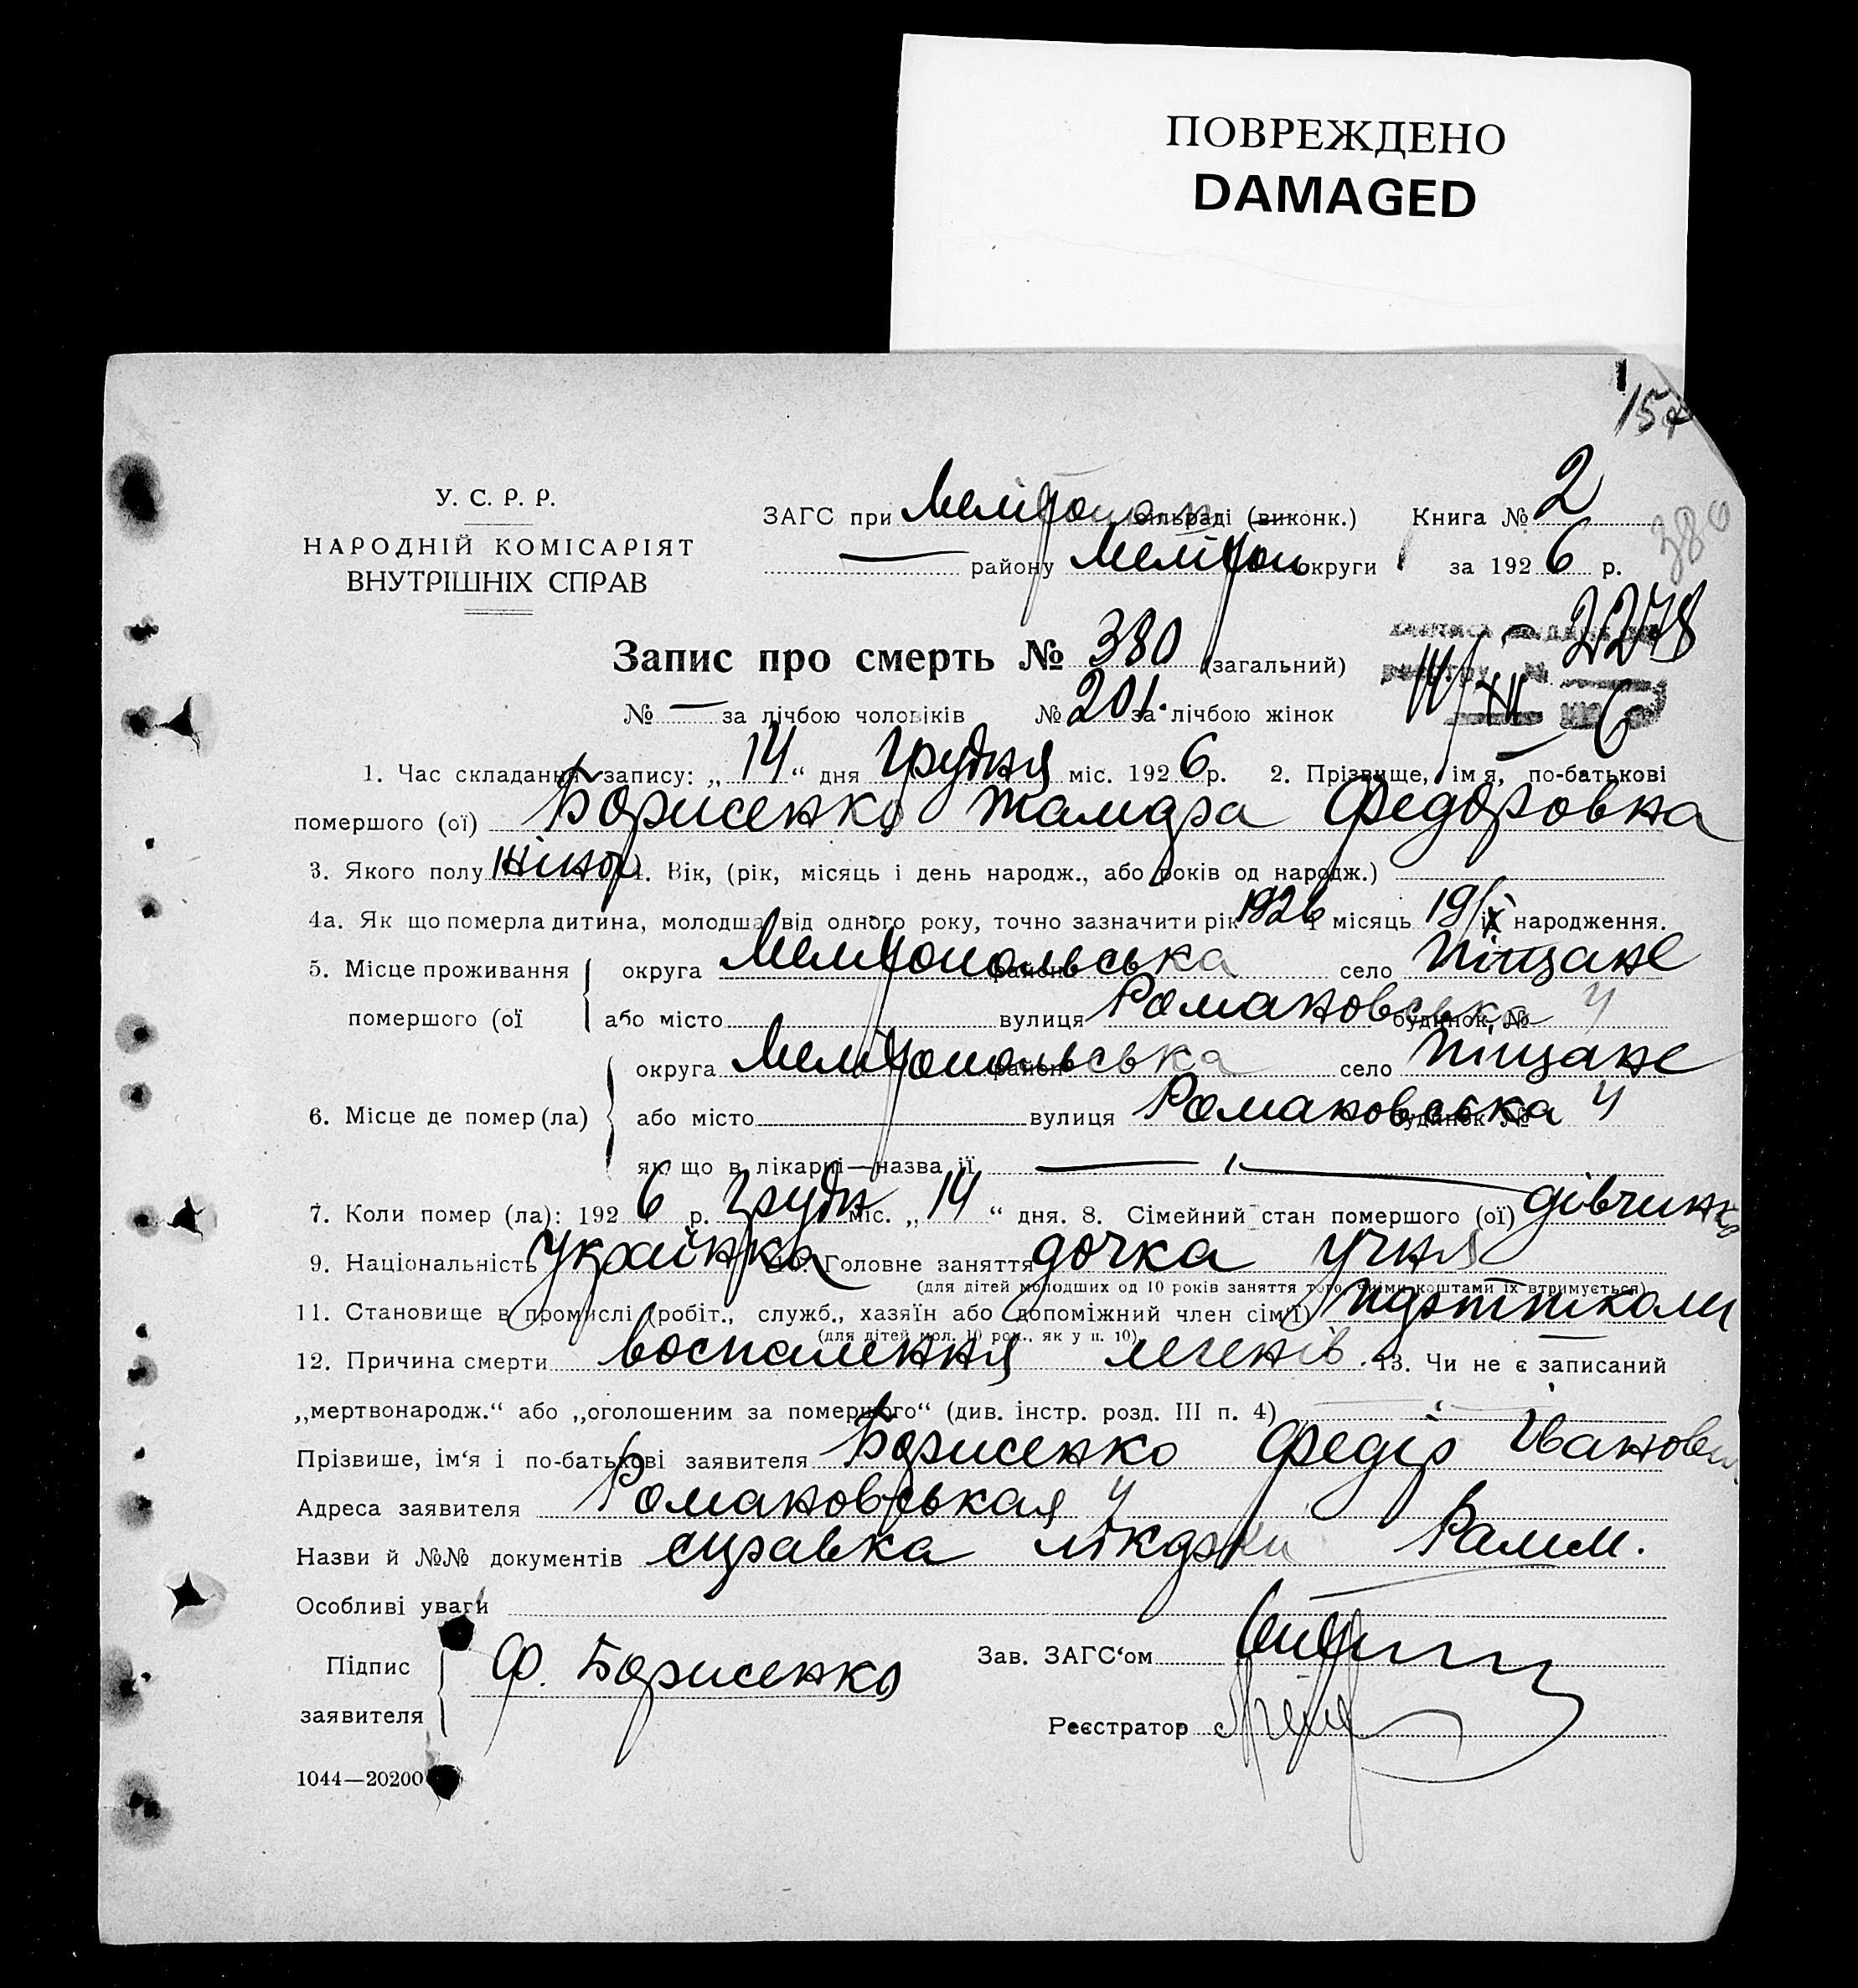 ПОВРЕЖДЕНО
DAMAGED
У. С. Р. Р.
НАРОДНІЙ КОМІСАРІЯТ
ВНУТРІШНІХ СПРАВ
ЗАГС при Меліtопол сільраді (виконк.) Книга № 2
району Меліtоп округи за 1926 р.
380
Запис про смерть № 380 (загальний)
2278
№ — за лічбою чоловіків № 201. за лічбою жінок
14/XII 6
1. Час складання запису: „14“ дня грудня міс. 1926 р. 2. Прізвище, ім'я, по-батькові
помершого (ої) Борисенко Тамара Федоровна
3. Якого полу жіноч 4. Вік, (рік, місяць і день народж., або років од народж.) —
4а. Як що померла дитина, молодша від одного року, точно зазначити рік 1926 місяць 19/IX народження.
5. Місце проживання округа Меліtопольська район село Піщане
помершого (ої або місто вулиця Романовська будинок № 4
округа Меліtопольська район село Піщане
6. Місце де помер (ла) або місто вулиця Романовська будинок № 4
як що в лікарні—назва її —
7. Коли помер (ла): 1926 р. грудн міс. „14“ дня. 8. Сімейний стан помершого (ої) дівчинка
9. Національність Українка 10. Головне заняття дочка учня
(для дітей молодших од 10 років заняття того, чиїми коштами їх втримується)
11. Становище в промислі (робіт., служб., хазяїн або допоміжний член сім'ї) партшколи
(для дітей мол. 10 рок., як у п. 10)
12. Причина смерти воспалення легенів. 13. Чи не є записаний
„мертвонародж.“ або „оголошеним за помершого“ (див. інстр. розд. III п. 4) —
Прізвище, ім‘я і по-батькові заявителя Борисенко Федір Іванович
Адреса заявителя Романовськая 4
Назви й №№ документів справка лікарки
Особливі уваги
Підпис
заявителя Ф. Борисенко
Зав. ЗАГС‘ом
Реєстратор
1044—20200